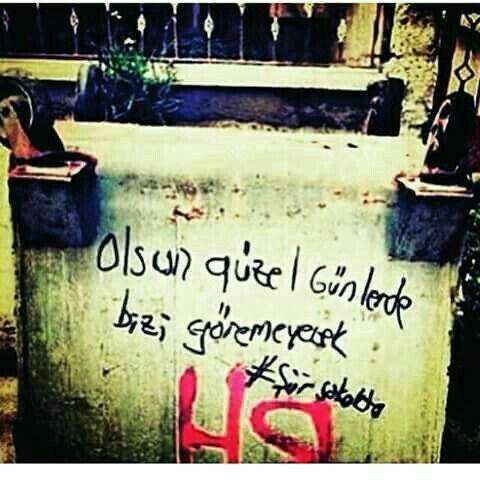 Olsun güzel Günlerde
bizi göremeyecek
#şiir sokakta